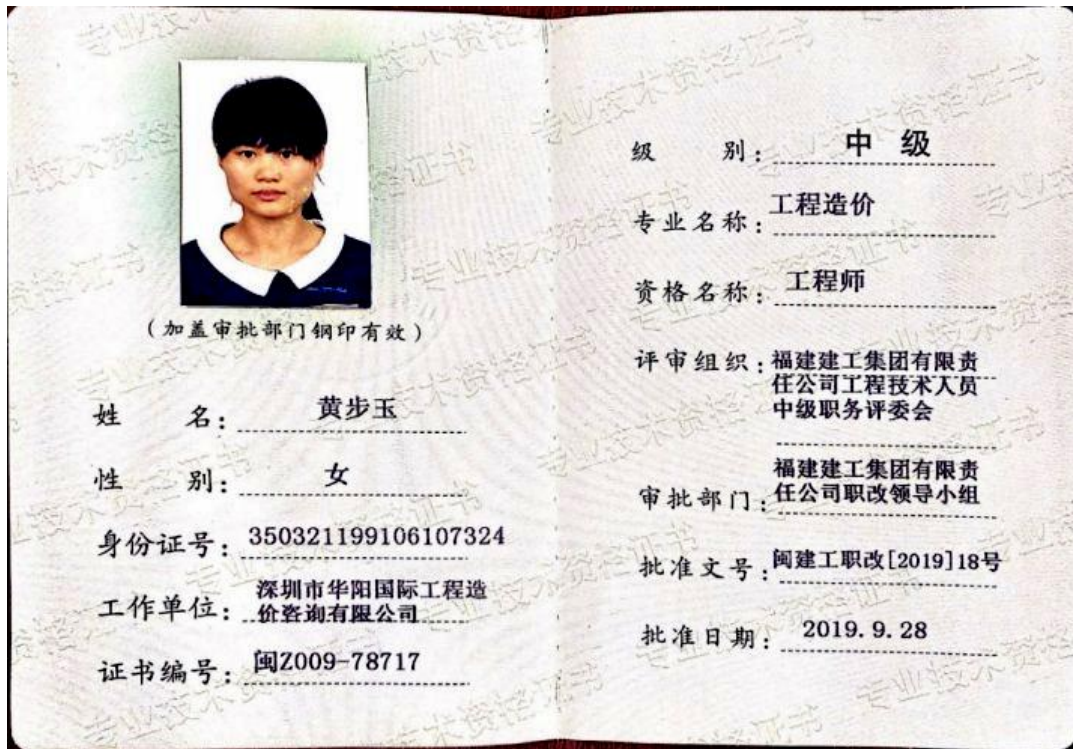 (加盖审批部门钢印有效)
姓 名: 黄步玉
性 别: 女
身份证号: 350321199106107324
工作单位: 深圳市华阳国际工程造
价咨询有限公司
证书编号: 闽Z009-78717
级 别: 中 级
专业名称: 工程造价
资格名称: 工程师
评审组织: 福建建工集团有限责
任公司工程技术人员
中级职务评委会
审批部门: 福建建工集团有限责
任公司职改领导小组
批准文号: 闽建工职改[2019]18号
批准日期: 2019.9.28
专业技术资格证书